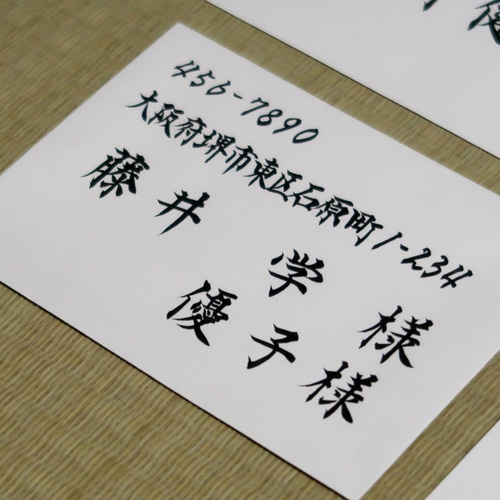 456-7890
大阪府堺市東区石原町1-234
藤井 学 様
優子様